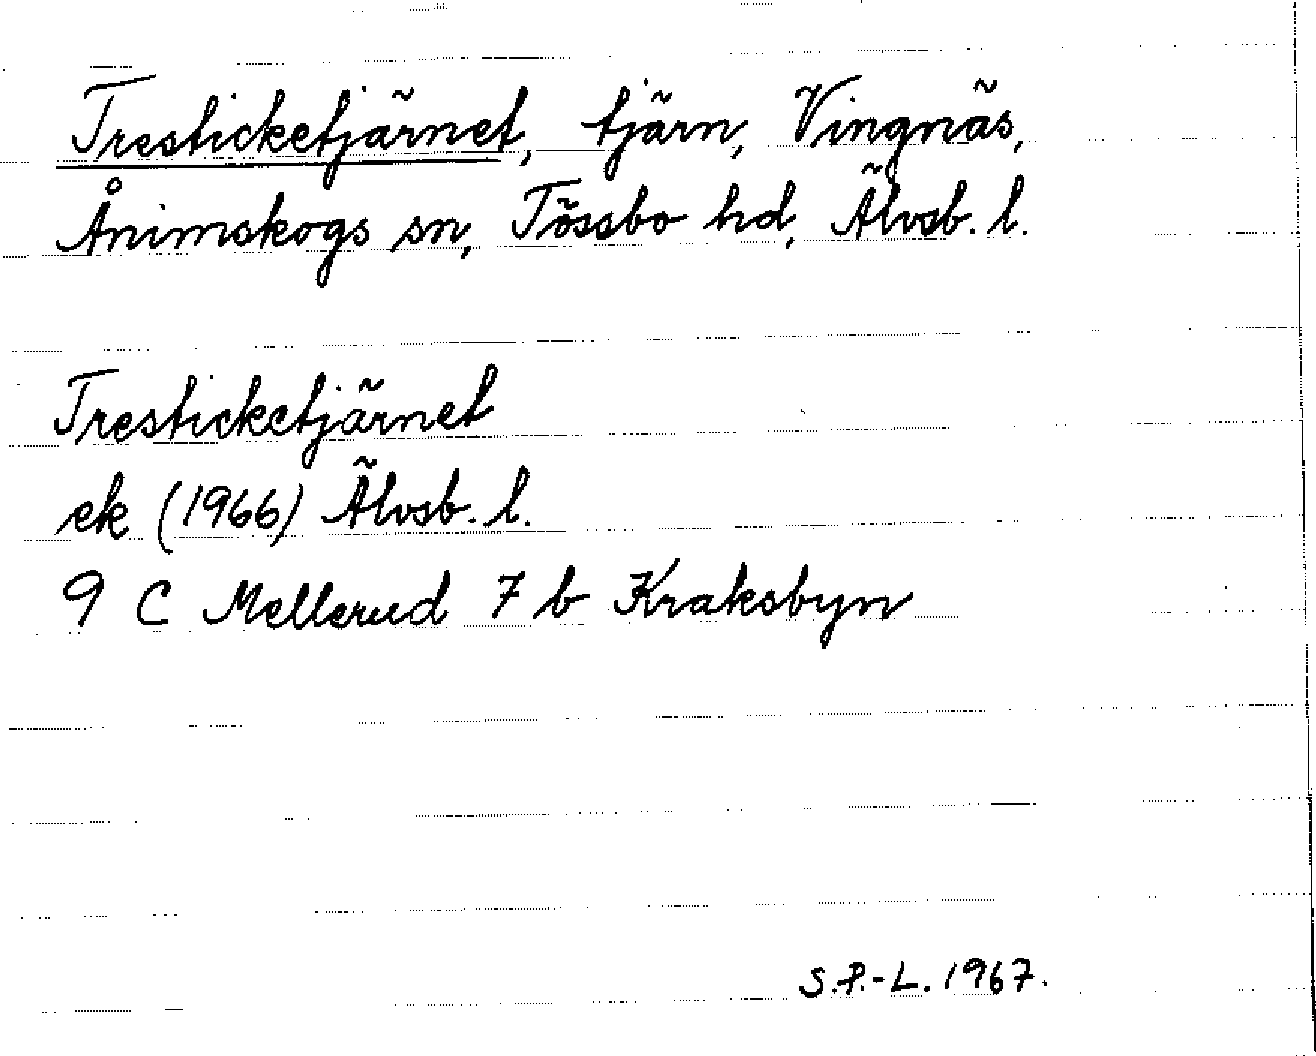 Tresticketjärnet, tjärn, Vingnäs,
Ånimskogs sn, Tössbo hd, Älvsb. l.
Tresticketjärnet
ek (1966) Älvsb. l.
9 C Mellerud 7 b Kraksbyn
S.P.-L. 1967.